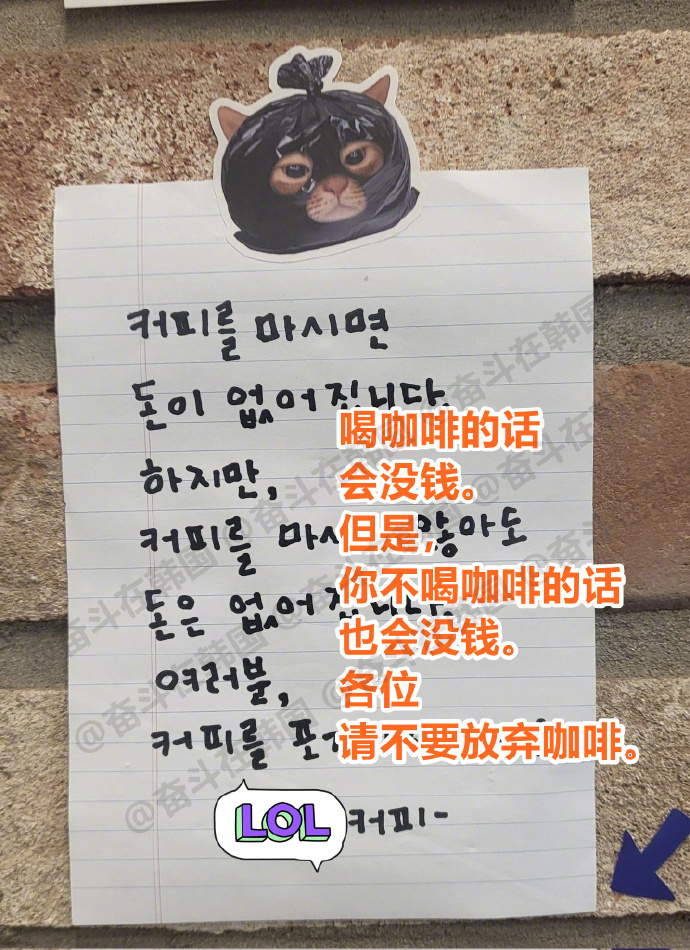 커피를 마시면
돈이 없어집니다.
하지만,
커피를 않아도
돈은
여러분,
커피를
커피-
喝咖啡的话
会没钱。
但是，
你不喝咖啡的话
也会没钱。
各位
请不要放弃咖啡。
LOL
@奋斗在韩国